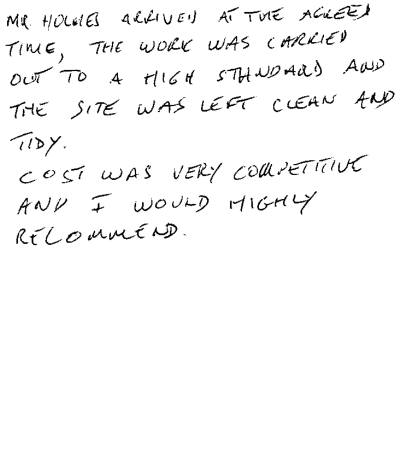 MR HOLMES ARRIVED AT THE AGREED
TIME, THE WORK WAS CARRIED
OUT TO A HIGH STANDARD AND
THE SITE WAS LEFT CLEAN AND
TIDY.
COST WAS VERY COMPETITIVE
AND I WOULD HIGHLY
RECOMMEND.